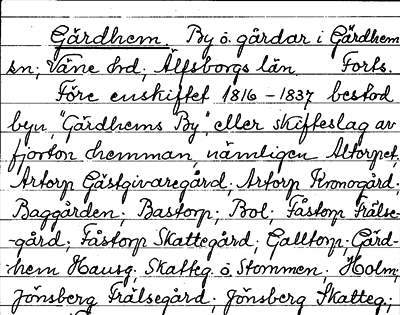 Gärdhem. By o. gårdar i Gärdhem
sn; Väne hd; Älfsborgs län. Forts.
Före enskiftet 1816-1837 bestod
byn, "Gärdhems By", eller skifteslag av
fjorton hemman, nämligen Altorpet,
Artorp Gästgivaregård; Artorp Kronogård;
Baggården; Bastorp; Bol; Fåstorp Frälse-
-gård; Fåstorp Skattegård; Galltorp; Gärd-
hem Hausg, Skatteg. o. Stommen; Holm;
Jönsberg Frälsegård; Jönsberg Skatteg;